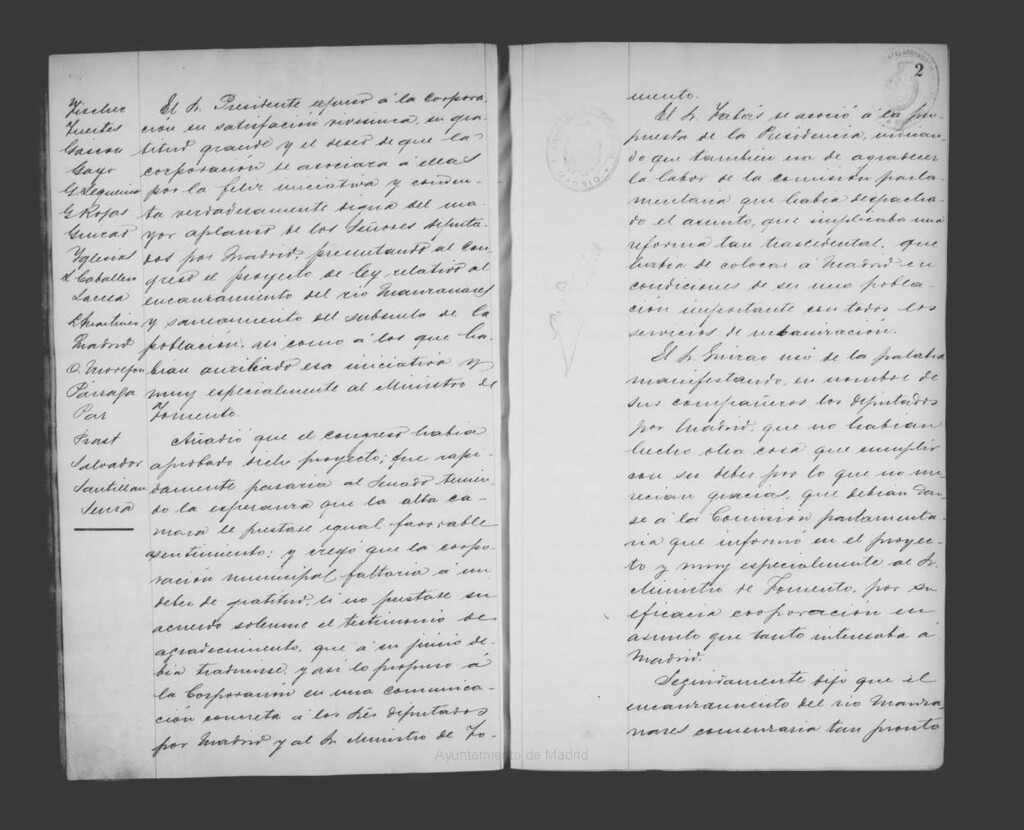 Fischer
Fuentes
Garcon
Gayo
G. Leguina
G. Rojas
Guirao
Yglesias
L. Caballero
Larrea
L. Martinez
Madrid
O. Mor
Párraga
Paz
Prast
Salvador
Santillan
Senra
El Sr. Presidente expuso á la Corpora-
cion su satisfacción vivisima, su gra-
titud grande y el deseo de que la
corporación se asociara á ellas
por la feliz iniciativa y conduc-
ta verdaderamente digna del ma-
yor aplauso de los Señores diputa-
dos por Madrid, presentando al Con-
greso el proyecto de ley, relativo al
encauzamiento del rio Manzanares
y saneamiento del subsuelo de la
población, asi como á los que ha-
bian auxiliado esa iniciativa y
muy especialmente al Ministro de
Fomento.
Añadió que el congreso habia
aprobado dicho proyecto; que rapi-
damente pasaria al Senado tenien-
do la esperanza que la alta ca-
mara le prestase igual favorable
asentimiento; y creyó que la corpo-
ración municipal faltaria á un
deber de gratitud, si no prestase su
acuerdo solemne el testimonio de
agradecimiento, que á su juicio de-
bia traducirse, y asi lo propuso á
la Corporación en una comunica-
ción concreta á los Sres diputados
por Madrid y al Sr. Ministro de Fo-
Ayuntamiento de Madrid
2
MADRID
mento.
El Sr. se asoció á la pro-
puesta de la Presidencia,
do que tambien era de agradecer
la labor de la comisión parla-
mentaria que habia despacha-
do el asunto, que implicaba una
reforma tan trascedental, que
habia de colocar á Madrid en
condiciones de ser una pobla-
ción importante con todos los
servicios de urbanización.
El Sr. Guirao usó de la palabra
manifestando, en nombre de
sus compañeros los diputados
por Madrid, que no habian
hecho otra cosa que cumplir
con su deber por lo que no me-
recian gracias, que debian dar-
se á la Comisión parlamenta-
ria que informó en el proyec-
to y muy especialmente al Sr.
Ministro de Fomento, por su
eficacia cooperación en
asunto que tanto interesaba á
Madrid.
Seguidamente dijo que el
encauzamiento del rio Manza-
nares comenzaria tan pronto